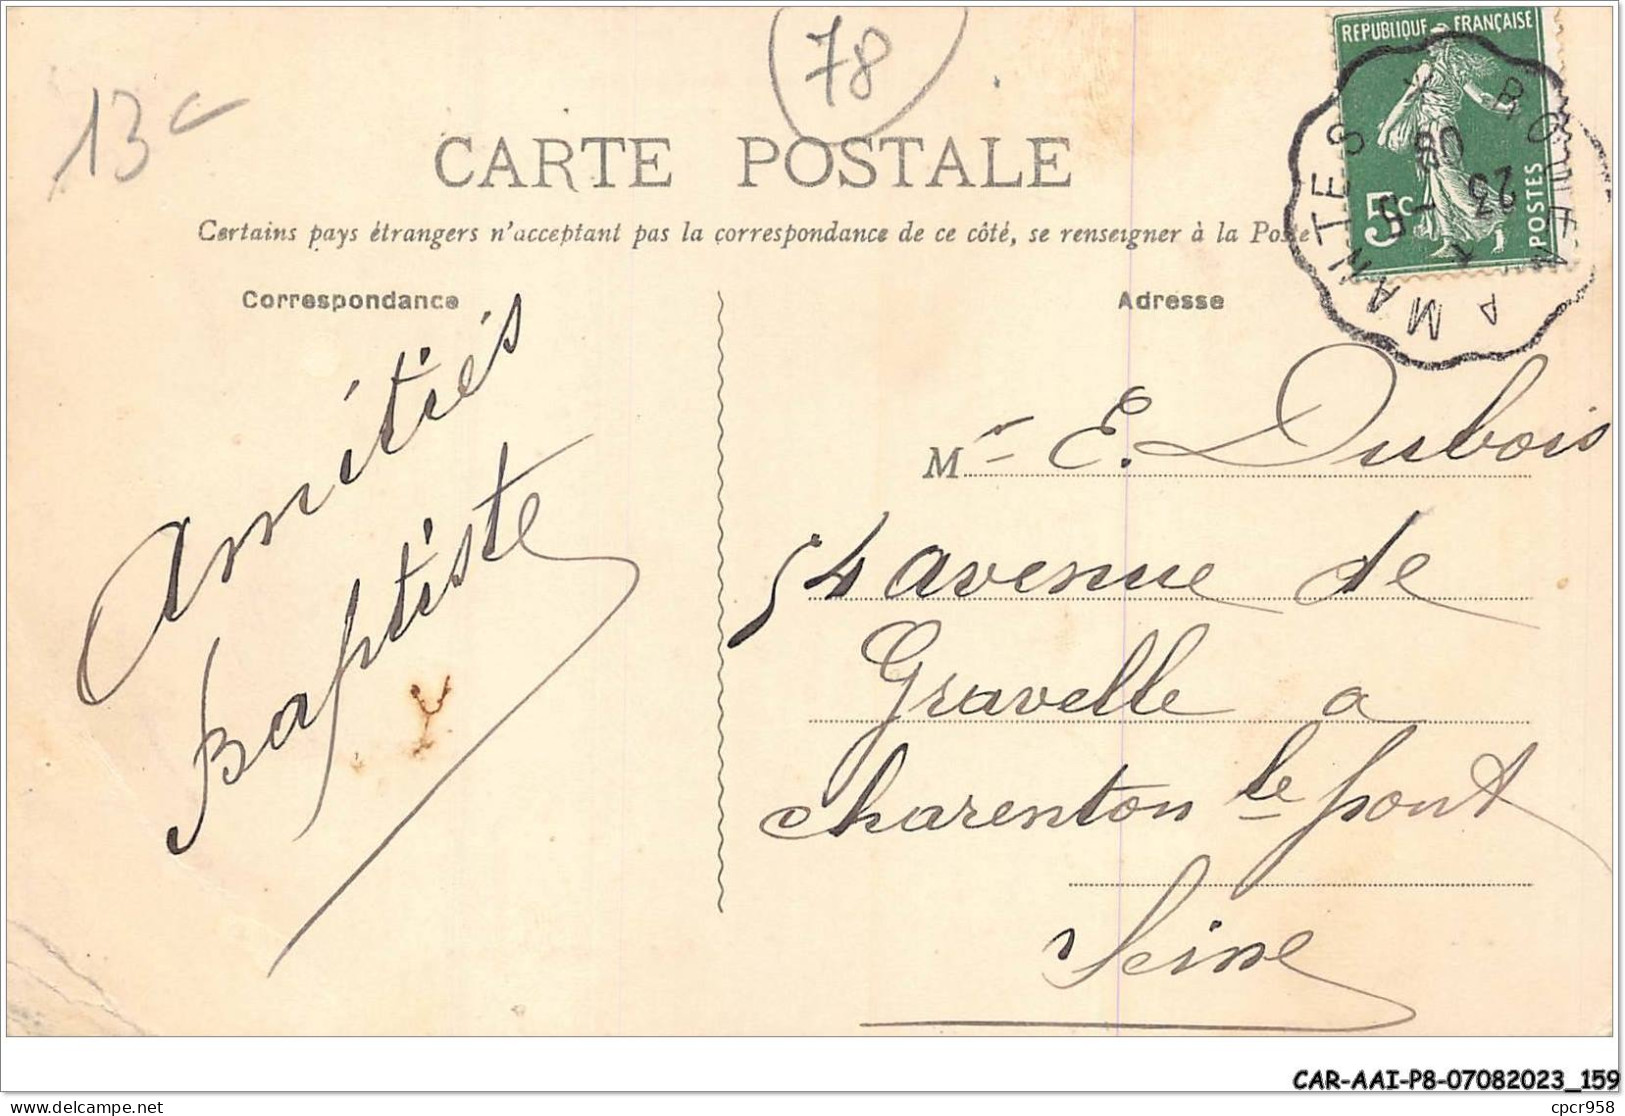 13
78
REPUBLIQUE FRANÇAISE
5c
POSTES
ROUEN A MANTES
23
08
CARTE POSTALE
Certains pays étrangers n'acceptant pas la correspondance de ce côté, se renseigner à la Poste
Correspondance
Adresse
Amitiés
Baptiste
Mr E. Dubois
54 avenue de
Gravelle a
charenton le pont
Seine
CAR-AAI-P8-07082023_159
delcampe.net
cpcr958